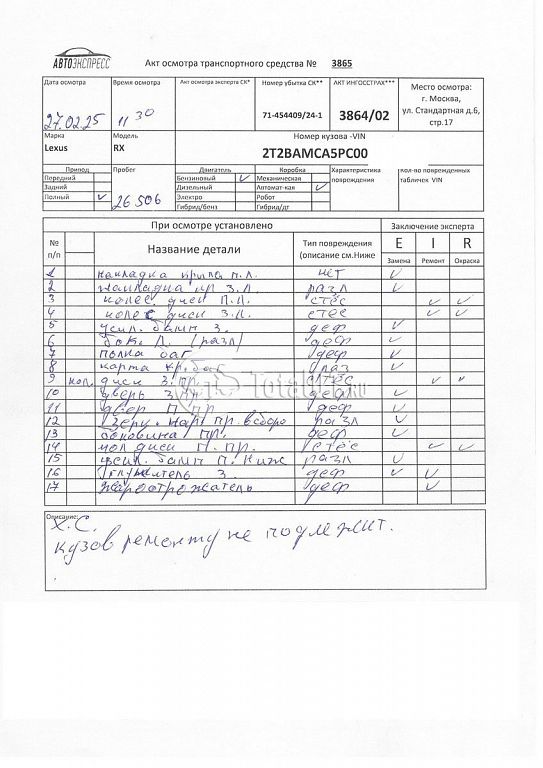 АВТОЭКСПРЕСС
Акт осмотра транспортного средства № 3865
Дата осмотра Время осмотра Акт осмотра эксперта СК* Номер убытка СК** АКТ ИНГОССТРАХ*** Место осмотра:
г. Москва,
ул. Стандартная д.6,
стр.17
27.02.25 11 30 71-454409/24-1 3864/02
Марка Модель Номер кузова -VIN
Lexus RX 2T2BAMCA5PC00
Привод Пробег Двигатель Коробка Характеристика повреждения кол-во поврежденных табличек VIN
Передний Бензиновый ✓ Механическая
Задний Дизельный Автомат-кая ✓
Полный ✓ 26 506 Электро Робот
Гибрид/бенз Гибрид/дт
При осмотре установлено Заключение эксперта
№ п/п Название детали Тип повреждения (описание см.Ниже E I R
Замена Ремонт Окраска
1 накладка крыла п.л. нет ✓
2 накладка кр з.л. разл ✓
3 колес. диск П.Л. стес ✓ ✓
4 колес диск З.Л. стес ✓ ✓
5 усил. бамп З. деф ✓
6 бок. Л. (разл) деф ✓
7 полка баг деф ✓
8 ✓
9 кол. диск З. стес ✓ ✓
10 дверь З. пр деф ✓
11 двер П пр деф ✓
12 Зерк. нар пр. в сборе разл ✓
13 боковина пр. деф ✓
14 кол диск П. пр. стес ✓ ✓
15 усил. бамп п. ниж разл ✓
16 глушитель З. деф ✓ ✓
17 деф ✓
TOTAL .RU
Описание: Х.С.
кузов ремонту не подлежит.